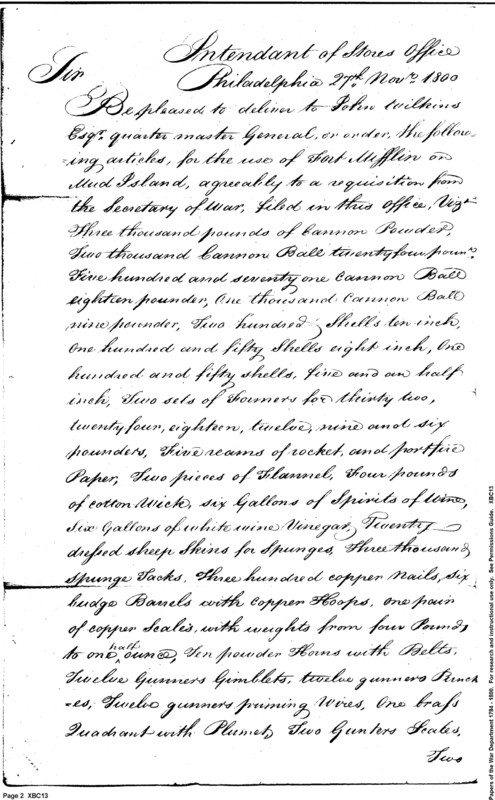 Intendant of Stores Office
Philadelphia 27th. Novr. 1800
Sir
Be pleased to deliver to John Wilkins
Esqr. quarter master General, or order, the follow-
=ing articles, for the use of Fort Mifflin on
Mud Island, agreeably to a requisition from
the Secretary of War, filed in this Office, Vizt
Three thousand pounds of Cannon Powder,
Two thousand Cannon Ball twenty four pounr.
Five hundred and seventy one Cannon Ball
eighteen pounder, One thousand Cannon Ball
nine pounder, Two hundred Shells ten inch,
One hundred and fifty Shells eight inch, One
hundred and fifty shells, five and an half
inch, Two sets of Formers for thirty two,
twenty four, eighteen, twelve, nine and six
pounders, Five reams of rocket, and portfire
Paper, Two pieces of Flannel, Four pounds
of cotton Wick, six Gallons of Spirits of Wine,
Six Gallons of white wine Vinegar, Twenty
dressed sheep Skins for Spunges, Three thousand
Spunge Tacks, Three hundred copper Nails, six
budge Barrels with Copper Hoops, one pair
of copper Scales, with weights from four Pounds
to one half ounce, Ten powder Horns with Belts,
Twelve Gunners Gimblets, twelve gunners Punch
=es, Twelve gunners priming Wires, One brass
Quadrant with Plumet, Two Gunters Scales,
Two
Page 2 XBC13
Papers of the War Department 1784 - 1800. For research and instructional use only. See Permissions Guide. XBC13